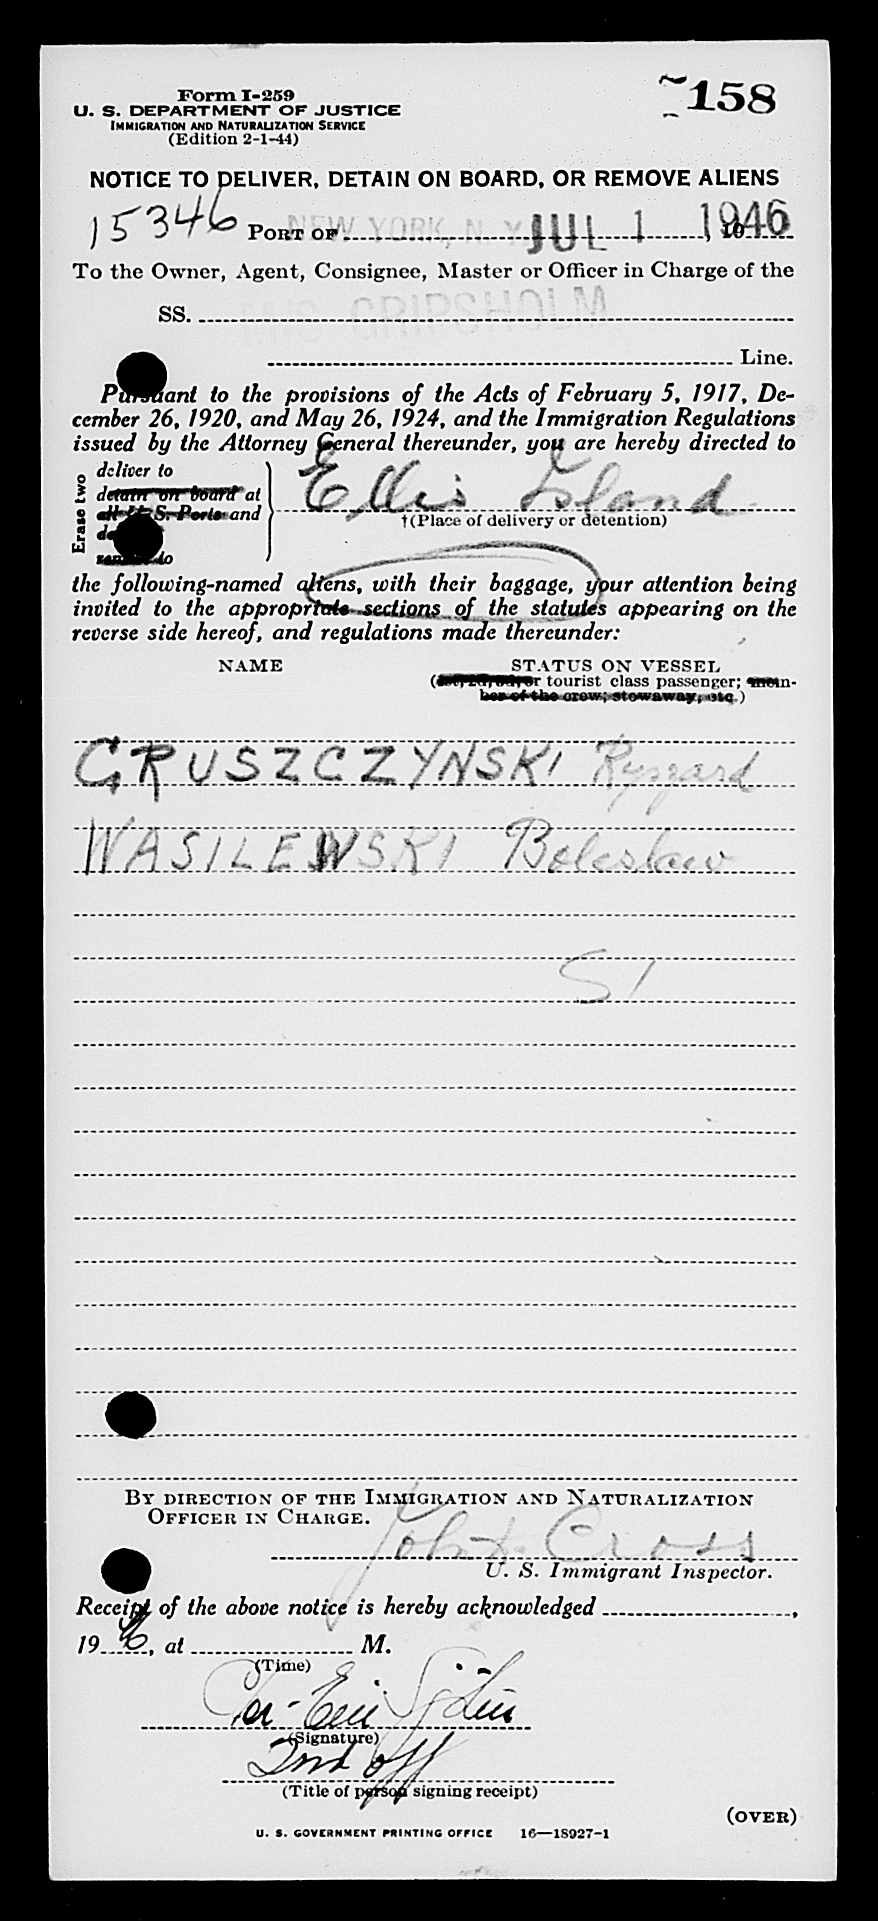 Form I-259
U. S. DEPARTMENT OF JUSTICE
IMMIGRATION AND NATURALIZATION SERVICE
(Edition 2-1-44)
158
NOTICE TO DELIVER, DETAIN ON BOARD, OR REMOVE ALIENS
15346 PORT OF NEW YORK, N. Y. JUL 1 1946
To the Owner, Agent, Consignee, Master or Officer in Charge of the
SS. M/S GRIPSHOLM
Line.
Pursuant to the provisions of the Acts of February 5, 1917, De-
cember 26, 1920, and May 26, 1924, and the Immigration Regulations
issued by the Attorney General thereunder, you are hereby directed to
Erase two
deliver to
detain on board at
all U. S. Ports and
remove to
Ellis Island
†(Place of delivery or detention)
the following-named aliens, with their baggage, your attention being
invited to the appropriate sections of the statutes appearing on the
reverse side hereof, and regulations made thereunder:
NAME STATUS ON VESSEL
(1st, 2d, 3d, or tourist class passenger; mem-
ber of the crew; stowaway, etc.)
GRUSZCZYNSKI Ryszard
WASILEWSKI Boleslaw
SI
BY DIRECTION OF THE IMMIGRATION AND NATURALIZATION
OFFICER IN CHARGE.
Cross
U. S. Immigrant Inspector.
Receipt of the above notice is hereby acknowledged
19 6, at M.
(Time)
(Signature)
2nd off
(Title of person signing receipt)
(OVER)
U. S. GOVERNMENT PRINTING OFFICE 16—18927-1